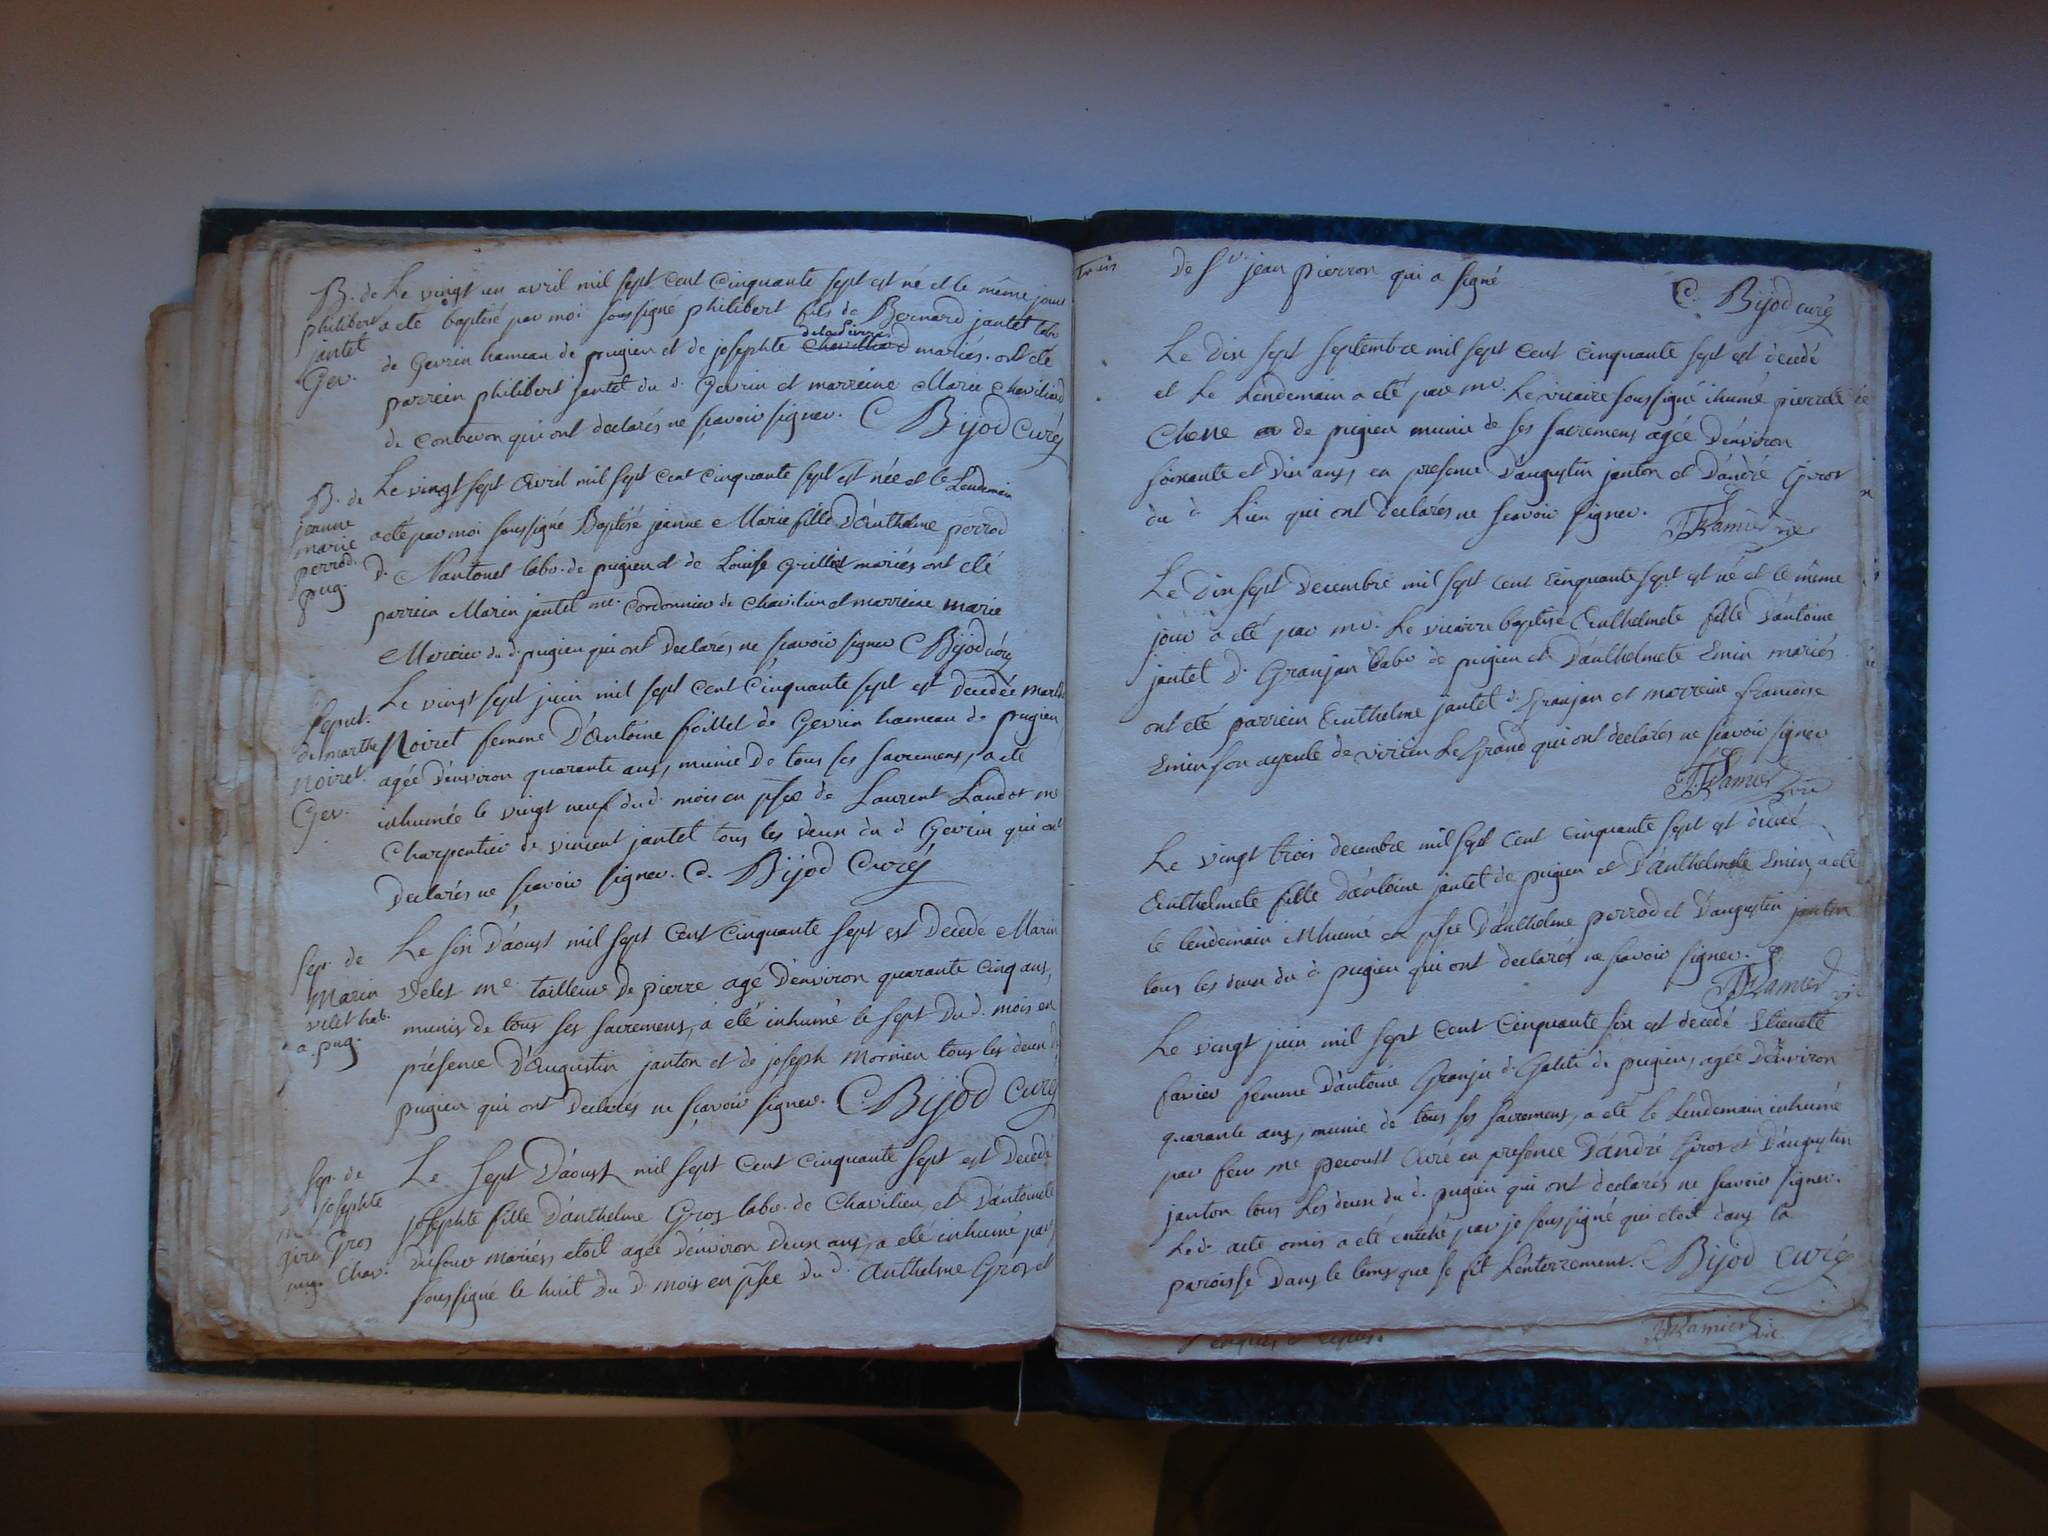 B. de
philibert
jantet
Gev.
Le vingt un avril mil sept cent cinquante sept est né et le même jour
a été baptisé par moi soussigné philibert fils de Bernard jantet labr
de Gevrin hameau de pugieu et de josephte Chavillard delapierre mariés. ont été
parrein philibert jantet du d. Gevrin et marreine Marie Chaviliard
de Contrevon qui ont declarés ne sçavoir signer. C Bijod Curé
B. de
jeanne
marie
perrod.
pug.
Le vingt sept avril mil sept cent cinquante sept est née et le Lendemain
a eté par moi soussigné Baptisé jeanne Marie fille d'Anthelme perrod
d. Nantonet labr. de pugieu et de Louise Grillet mariés ont eté
parrein Marin jantet me. Cordonnier de Chavilieu et marreine marie
Mercier du d. pugieu qui ont declarés ne sçavoir signer C Bijod curé
sepul.
de marthe
Noiret.
Gev.
Le vingt sept juin mil sept cent cinquante sept est decedée marthe
Noiret femme d'Antoine foillet de Gevrin hameau de pugieu
agée d'environ quarante ans, munie de tous ses sacremens, a eté
inhumée le vingt neuf du d. mois en psce de Laurent Landot me
Charpentier de vincent jantet tous les deux du d Gevrin qui ont
declarés ne sçavoir signer. C. Bijod Curé
sep. de
Marin
velet hab.
a pug.
Le six d'aoust mil sept cent cinquante sept est decedé Marin
velet me tailleur de pierre agé d'environ quarante cinq ans,
munis de tous ses sacremens, a été inhumé le sept du d. mois en
présence d'Augustin janton et de joseph Mornieu tous les deux d
pugieu qui ont declarés ne sçavoir signer. C Bijod Curé
sep. de
josephte
Gros
Chav.
Le sept d'aoust mil sept cent cinquante sept est decedé
josephte fille d'anthelme Gros labr. de Chavilieu et d'antoinette
dufour mariés, etoit agée d'environ deux ans, a eté inhumé par
soussigné le huit du d mois en psce du d. Anthelme Gros et
de Sr jean pierron qui a signé
C. Bijod curé
Le dix sept septembre mil sept cent cinquante sept est decedé
et le Lendemain a eté par mr. Le vicaire soussigné ihumé pierrette
Chene de pugieu munie de ses sacremens agée d'environ
soixante et dix ans, en presence d'augustin janton et d'andré Gros
du d Lieu qui ont declarés ne scavoir signer. Ramier vic
Le dix sept decembre mil sept cent cinquante sept est né et le même
jour a eté par mr. Le vicaire baptisé Anthelmete fille d'antoine
jantet d. Granjan labr de pugieu et d'anthelmete Emin mariés
ont eté parrein Anthelme jantet d. Granjan et marreine françoise
Emin son ayeule de virieu Le Grand qui ont declarés ne scavoir signer
Ramier vic
Le vingt trois decembre mil sept cent cinquante sept est decedé
Anthelmete fille d'Antoine jantet de pugieu et d'anthelmete Emin, a eté
le lendemain inhumé en psce d'anthelme perrod et d'augustin janton
tous les deux du d. pugieu qui ont declarés ne scavoir signer.
Ramier vic
Le vingt juin mil sept cent cinquante six est decedé Etienette
favier femme d'antoine Granju d. Galiti de pugieu, agée d'environ
quarante ans, munie de tous ses sacremens, a eté le Lendemain inhumé
par feu me pecoult Curé en presence d'andré Gros et d'augustin
janton tous Les deux du d. pugieu qui ont declarés ne scavoir signer.
Le d. acte omis a eté par je soussigné qui etoit dans la
paroisse dans le tems que se fit Lenterrement. Bijod Curé
Ramier vic